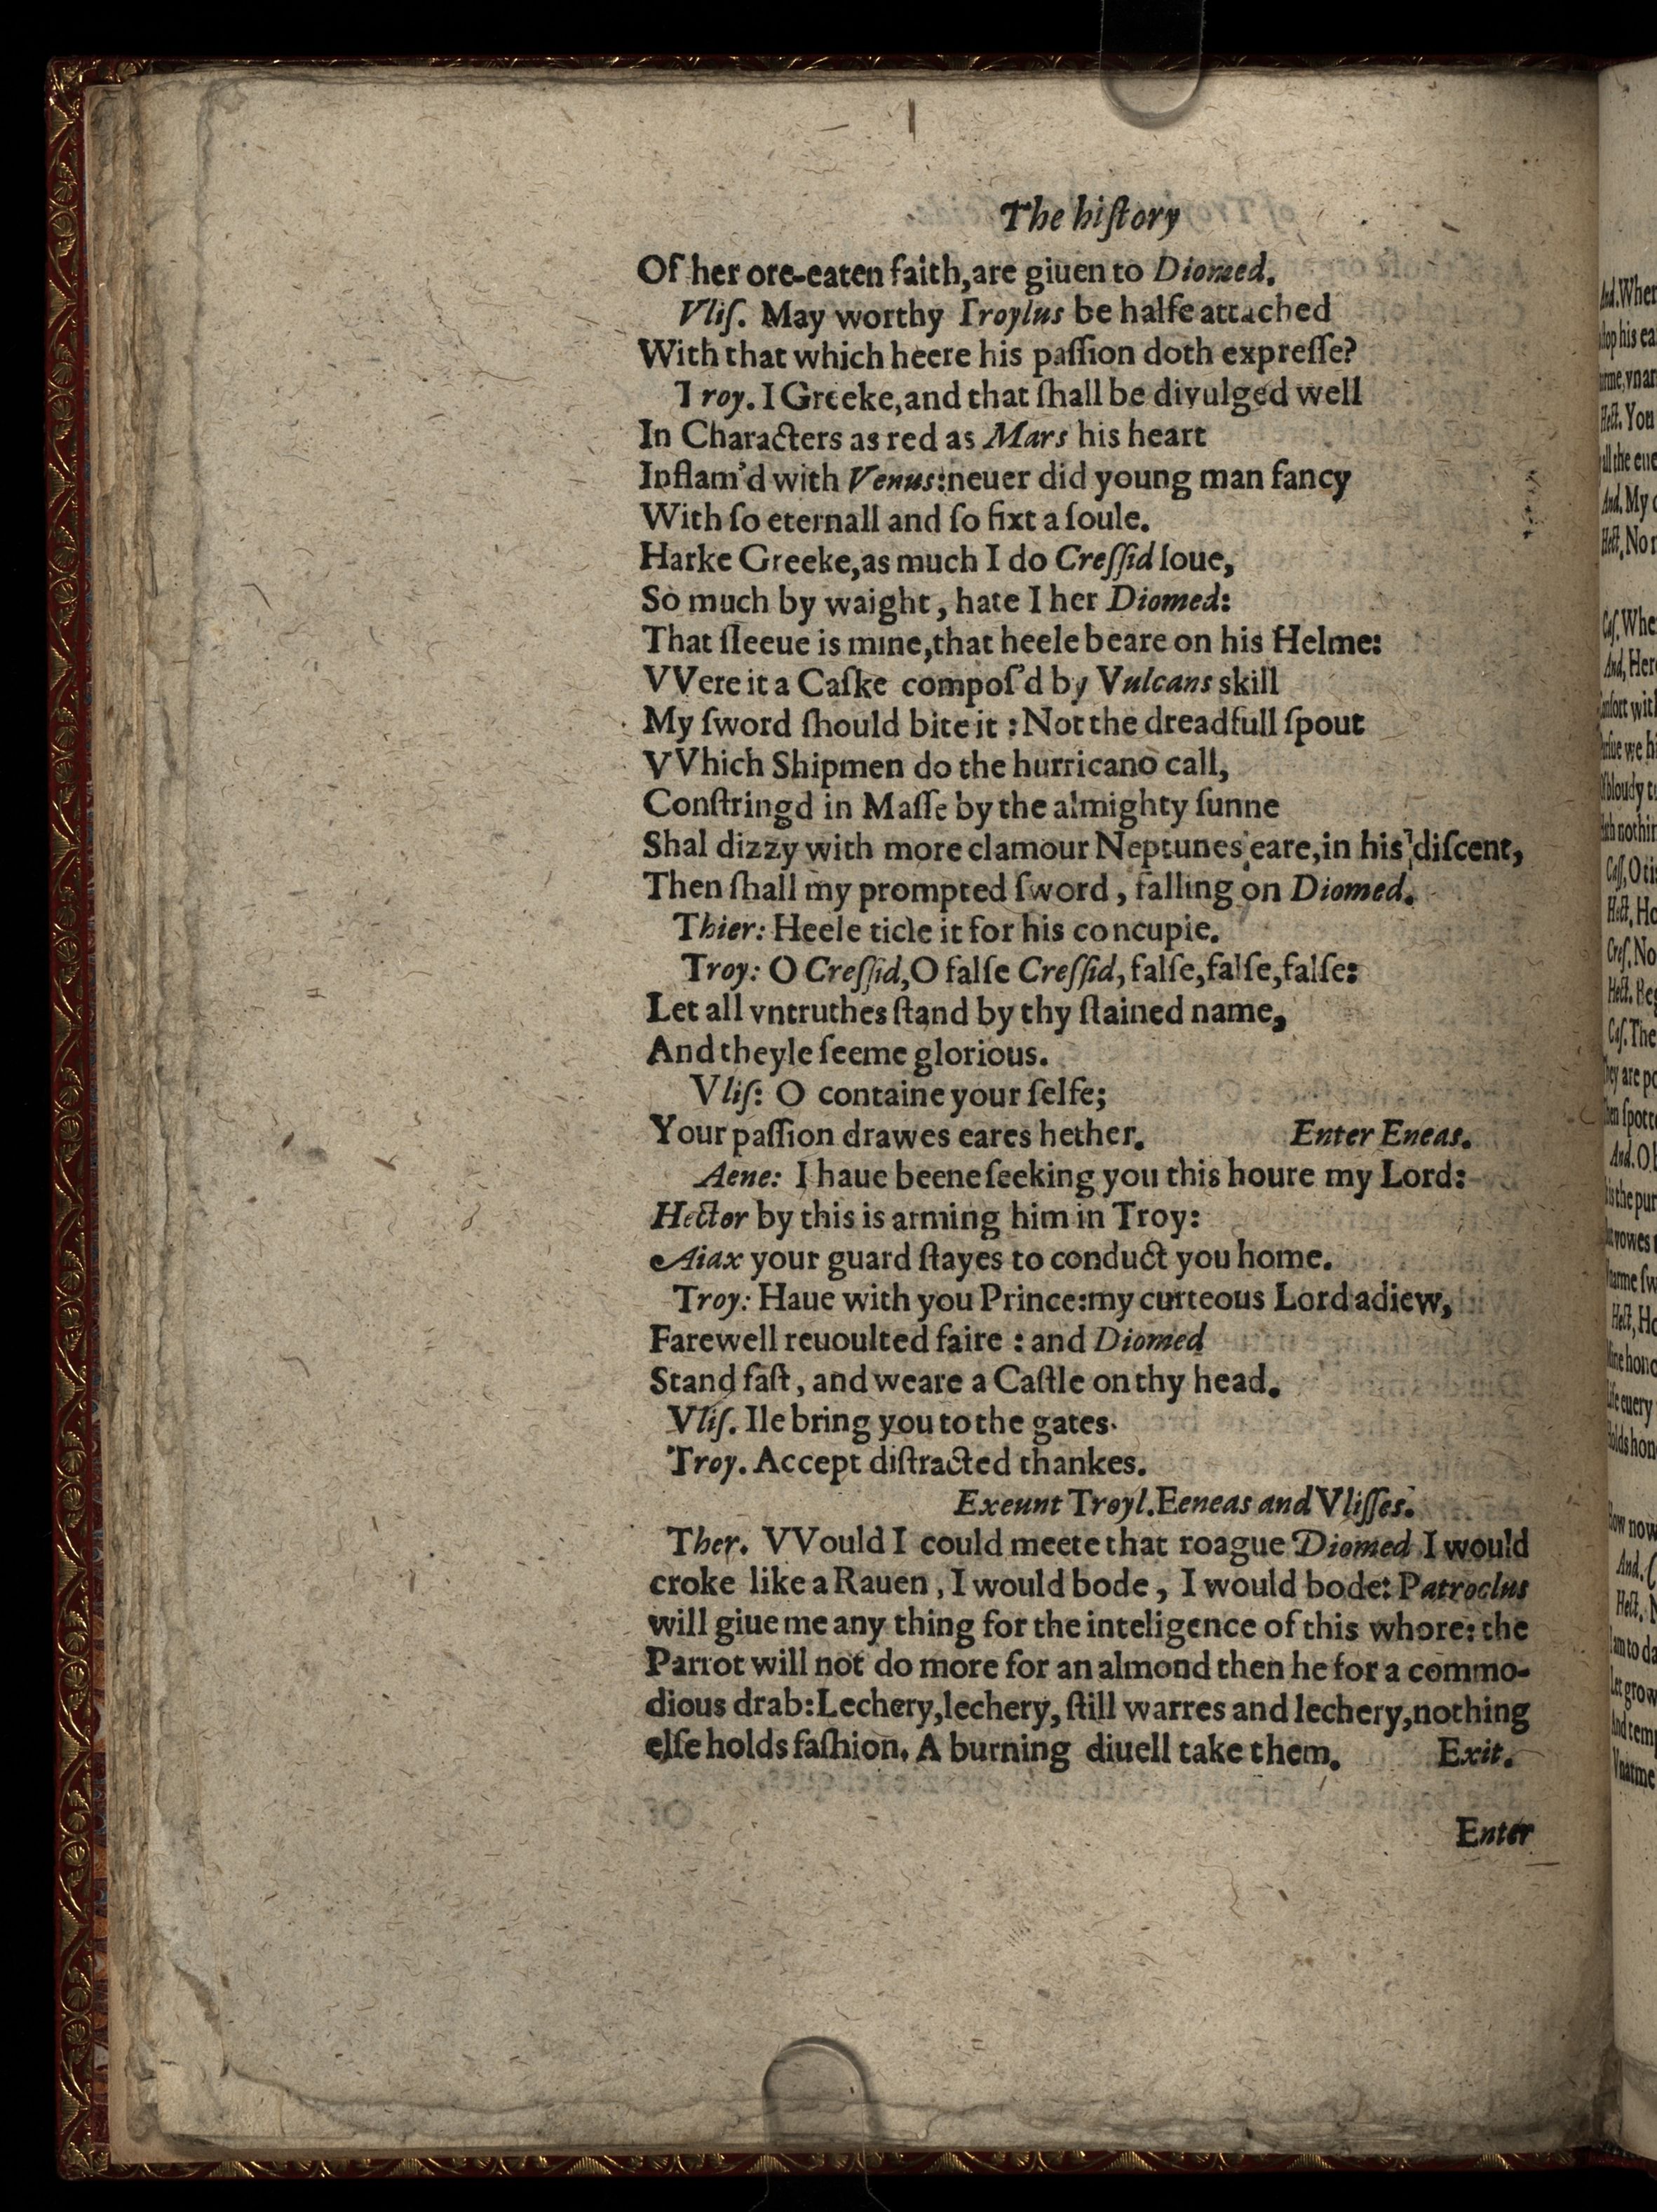 The hiſtory
Of her ore-eaten faith,are giuen to Diomed.
Vliſ. May worthy Troylus be halfe attached
With that which heere his paſſion doth expreſſe?
Troy. I Greeke,and that ſhall be divulged well
In Characters as red as Mars his heart
Inflam'd with Venus:neuer did young man fancy
With ſo eternall and ſo fixt a ſoule.
Harke Greeke,as much I do Creſſid loue,
So much by waight, hate I her Diomed:
That ſleeue is mine,that heele beare on his Helme:
VVere it a Caſke compoſ'd by Vulcans skill
My ſword ſhould bite it : Not the dreadfull ſpout
VVhich Shipmen do the hurricano call,
Conſtringd in Maſſe by the almighty ſunne
Shal dizzy with more clamour Neptunes eare,in his diſcent,
Then ſhall my prompted ſword, falling on Diomed.
Thier: Heele ticle it for his concupie.
Troy: O Creſſid,O falſe Creſſid, falſe,falſe,falſe:
Let all vntruthes ſtand by thy ſtained name,
And theyle ſeeme glorious.
Vliſ: O containe your ſelfe;
Your paſſion drawes eares hether. Enter Eneas.
Aene: I haue beene ſeeking you this houre my Lord:
Hector by this is arming him in Troy:
Aiax your guard ſtayes to conduct you home.
Troy: Haue with you Prince:my curteous Lord adiew,
Farewell reuoulted faire : and Diomed
Stand faſt, and weare a Caſtle on thy head.
Vliſ. Ile bring you to the gates.
Troy. Accept diſtracted thankes.
Exeunt Troyl.Eeneas and Vliſſes.
Ther. VVould I could meete that roague Diomed I would
croke like a Rauen, I would bode, I would bode: Patroclus
will giue me any thing for the inteligence of this whore: the
Parrot will not do more for an almond then he for a commo-
dious drab:Lechery,lechery, ſtill warres and lechery,nothing
elſe holds faſhion. A burning diuell take them. Exit.
Enter